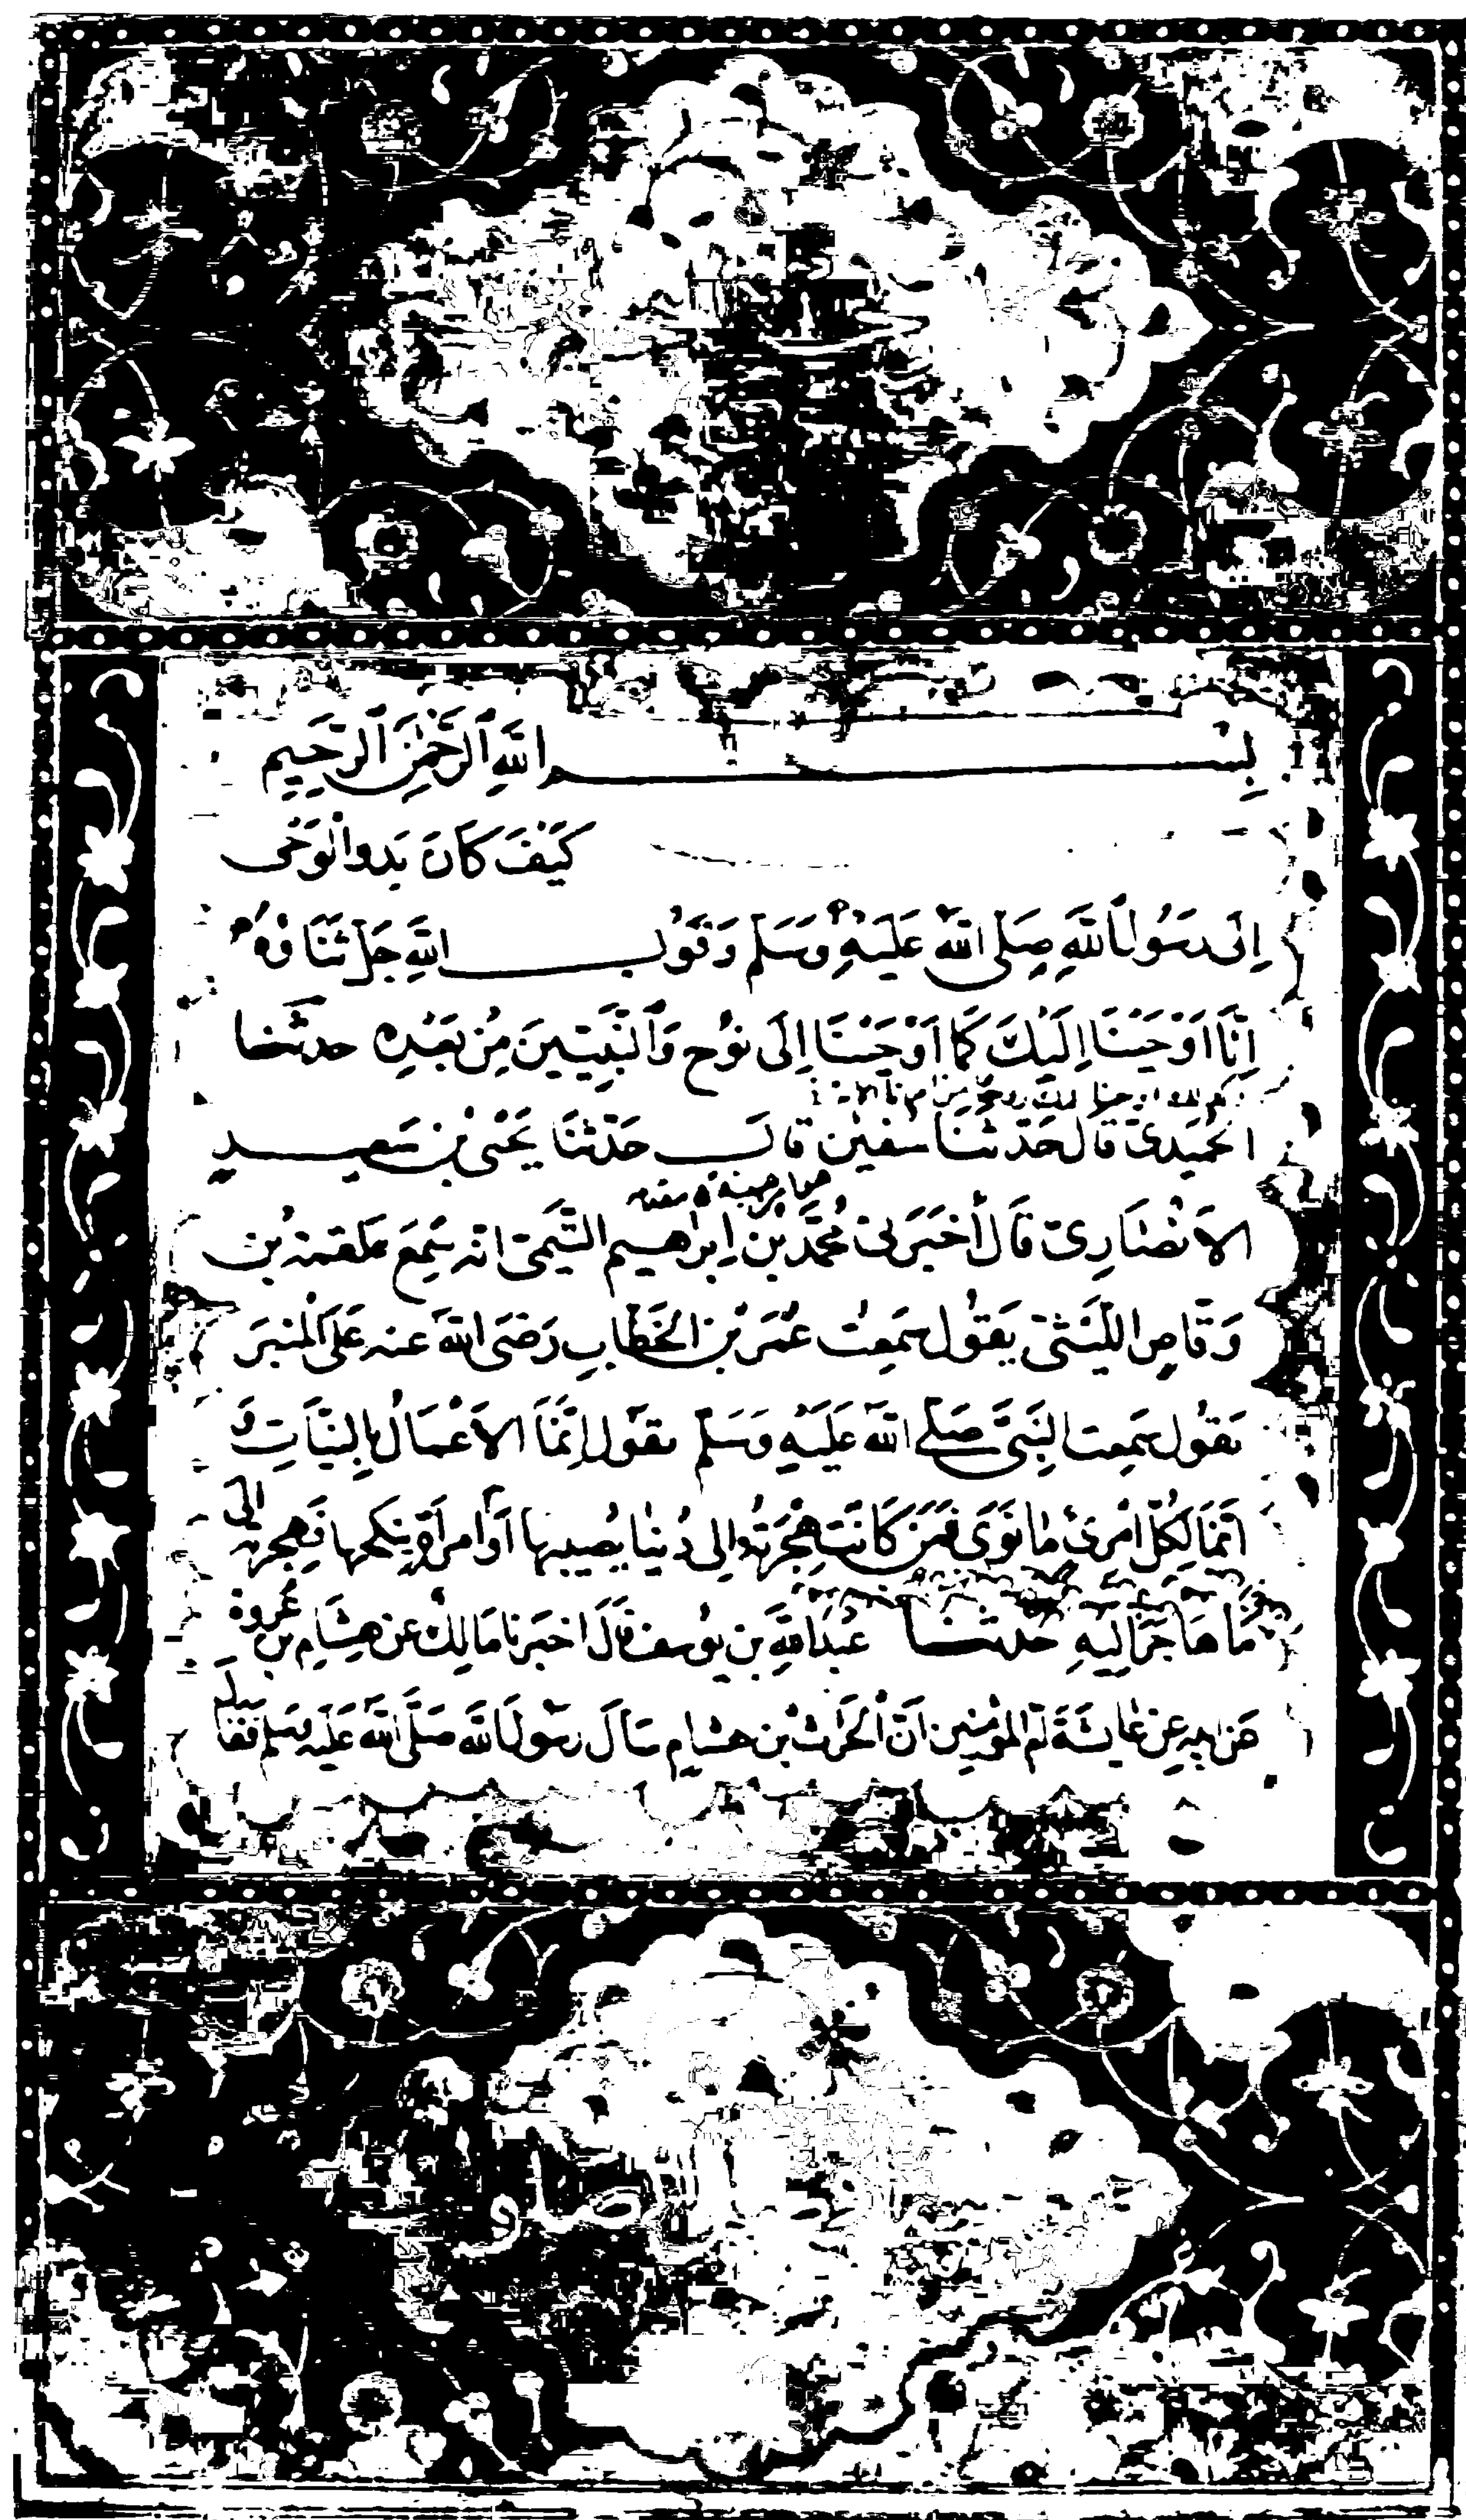 بِسْمِ اللهِ الرَّحْمٰنِ الرَّحِيمِ
كَيْفَ كَانَ بَدو الْوَحْى
اِلَى رَسُولِ اللَّهِ صِلى الله عَلَيْهِ وَسَلم وَقَوْل اللهِ جَلَّ ثَنَاؤُهُ
اِنَّا اَوْحَيْنَا اِلَيْكَ كَمَا اَوْحَيْنَا اِلَى نُوْحٍ وَالنَّبِيِّينَ مِنْ بَعْدِهِ حدثنا
الحُمَيْدِىّ قَالَ حَدّثنَا سفيٰن قال حَدّثنَا يَحْيَى بْن سَعِيدٍ
الاَنْصَارِىّ قَالَ اَخْبَرَنى مُحَمَّد بْن اِبرٰهِيم التَّيْمِىّ انه سَمِعَ علقمة بْن
وَقَّاصٍ اللَّيْثىّ يَقُول سَمِعْت عُمَرَ بْن الخَطَّابِ رَضىَ الله عنه عَلَى المنبر
يَقُول سَمِعت النَّبىَّ صَلى الله عَلَيْهِ وَسَلم يقول اِنَّمَا الاَعْمَالُ بِالنِّيَّاتِ وَ
اِنّمَا لِكُلّ امْرِئ مَا نَوَى فَمَن كَانَت هِجْرَتُه الى دُنيَا يُصيبها اَوْ امرَاَةٍ ينكحها فَهِجرته الى
مَا هَاجَرَ اليهِ حدثنا عَبْدُ اللهِ بن يُوسف قَالَ اخبرنا مَالِك عن هِشَامِ بن عُروة
عَن ابيه عِن عَايشَةَ اُم المؤمنين اَنّ الْحَرث بْن هشام سَاَلَ رسُولَ الله صَلَّى الله عَلَيْه وسَلم فَقَال